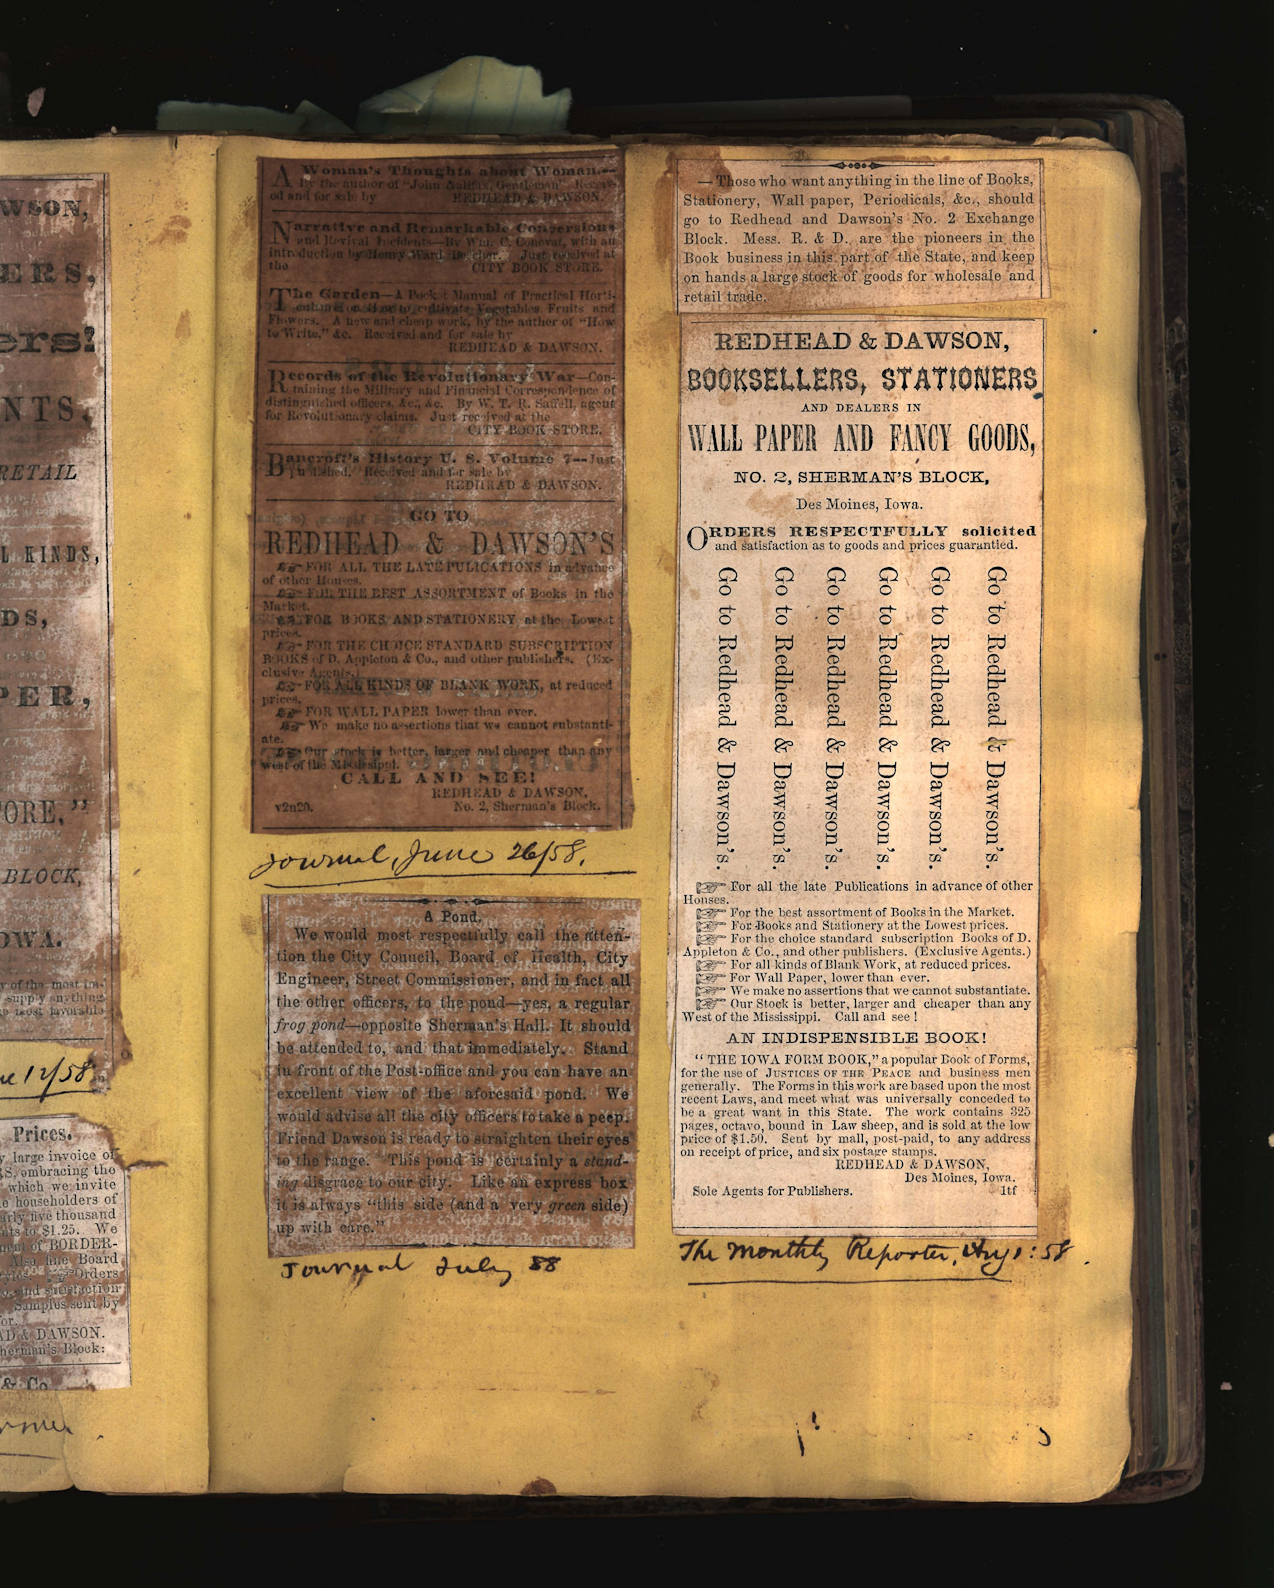 WSON,
ERS,
ers!
NTS,
RETAIL
L KINDS,
DS,
PER,
ORE,"
BLOCK,
OWA.
y of the most im-
supply anything
most favorable
ne 12/58
Prices.
large invoice of
S, embracing the
which we invite
householders of
arly five thousand
nts to $1.25. We
ment of BORDER-
Also fine Board
Orders
and satisfaction
Samples sent by
for.
AD & DAWSON.
herman's Block:
& Co
A Woman's Thoughts about Woman.—
By the author of "John Halifax, Gentleman" Receiv-
ed and for sale by REDHEAD & DAWSON.
Narrative and Remarkable Conversions
and Revival Incidents—By Wm. C. Conevat, with an
introduction by Henry Ward Beecher. Just received at
the CITY BOOK STORE.
The Garden—A Pocket Manual of Practical Horti-
culture or How to cultivate Vegetables Fruits and
Flowers. A new and cheap work, by the author of "How
to Write," &c. Received and for sale by
REDHEAD & DAWSON.
Records of the Revolutionary War—Con-
taining the Military and Financial Correspondence of
distinguished officers, &c., &c. By W. T. R. Saffell, agent
for Revolutionary claims. Just received at the
CITY BOOK STORE.
Bancroft's History U. S. Volume 7—Just
published. Received and for sale by
REDHEAD & DAWSON.
GO TO
REDHEAD & DAWSON'S
☞ FOR ALL THE LATE PULICATIONS in advance
of other Houses.
☞ FOR THE BEST ASSORTMENT of Books in the
Market.
☞ FOR BOOKS AND STATIONERY at the Lowest
prices.
☞ FOR THE CHOICE STANDARD SUBSCRIPTION
BOOKS of D. Appleton & Co., and other publishers. (Ex-
clusive Agents.)
☞ FOR ALL KINDS OF BLANK WORK, at reduced
prices.
☞ FOR WALL PAPER lower than ever.
☞ We make no assertions that we cannot substanti-
ate.
☞ Our stock is better, larger and cheaper than any
west of the Mississippi.
CALL AND SEE!
REDHEAD & DAWSON,
v2n20. No. 2, Sherman's Block.
Journal, June 26/58.
A Pond.
We would most respectfully call the atten-
tion the City Council, Board of Health, City
Engineer, Street Commissioner, and in fact all
the other officers, to the pond—yes, a regular
frog pond—opposite Sherman's Hall. It should
be attended to, and that immediately. Stand
in front of the Post-office and you can have an
excellent view of the aforesaid pond. We
would advise all the city officers to take a peep.
Friend Dawson is ready to straighten their eyes
to the range. This pond is certainly a stand-
ing disgrace to our city. Like an express box
it is always "this side (and a very green side)
up with care."
Journal July 58
—Those who want anything in the line of Books,
Stationery, Wall paper, Periodicals, &c., should
go to Redhead and Dawson's No. 2 Exchange
Block. Mess. R. & D. are the pioneers in the
Book business in this part of the State, and keep
on hands a large stock of goods for wholesale and
retail trade.
REDHEAD & DAWSON,
BOOKSELLERS, STATIONERS
AND DEALERS IN
WALL PAPER AND FANCY GOODS,
NO. 2, SHERMAN'S BLOCK,
Des Moines, Iowa.
ORDERS RESPECTFULLY solicited
and satisfaction as to goods and prices guarantied.
Go to Redhead & Dawson's.
Go to Redhead & Dawson's.
Go to Redhead & Dawson's.
Go to Redhead & Dawson's.
Go to Redhead & Dawson's.
Go to Redhead & Dawson's.
☞ For all the late Publications in advance of other
Houses.
☞ For the best assortment of Books in the Market.
☞ For Books and Stationery at the Lowest prices.
☞ For the choice standard subscription Books of D.
Appleton & Co., and other publishers. (Exclusive Agents.)
☞ For all kinds of Blank Work, at reduced prices.
☞ For Wall Paper, lower than ever.
☞ We make no assertions that we cannot substantiate.
☞ Our Stock is better, larger and cheaper than any
West of the Mississippi. Call and see!
AN INDISPENSIBLE BOOK!
"THE IOWA FORM BOOK," a popular Book of Forms,
for the use of JUSTICES OF THE PEACE and business men
generally. The Forms in this work are based upon the most
recent Laws, and meet what was universally conceded to
be a great want in this State. The work contains 325
pages, octavo, bound in Law sheep, and is sold at the low
price of $1.50. Sent by mail, post-paid, to any address
on receipt of price, and six postage stamps.
REDHEAD & DAWSON,
Des Moines, Iowa.
Sole Agents for Publishers. 1tf
The Monthly Reporter, Aug 1: 58.